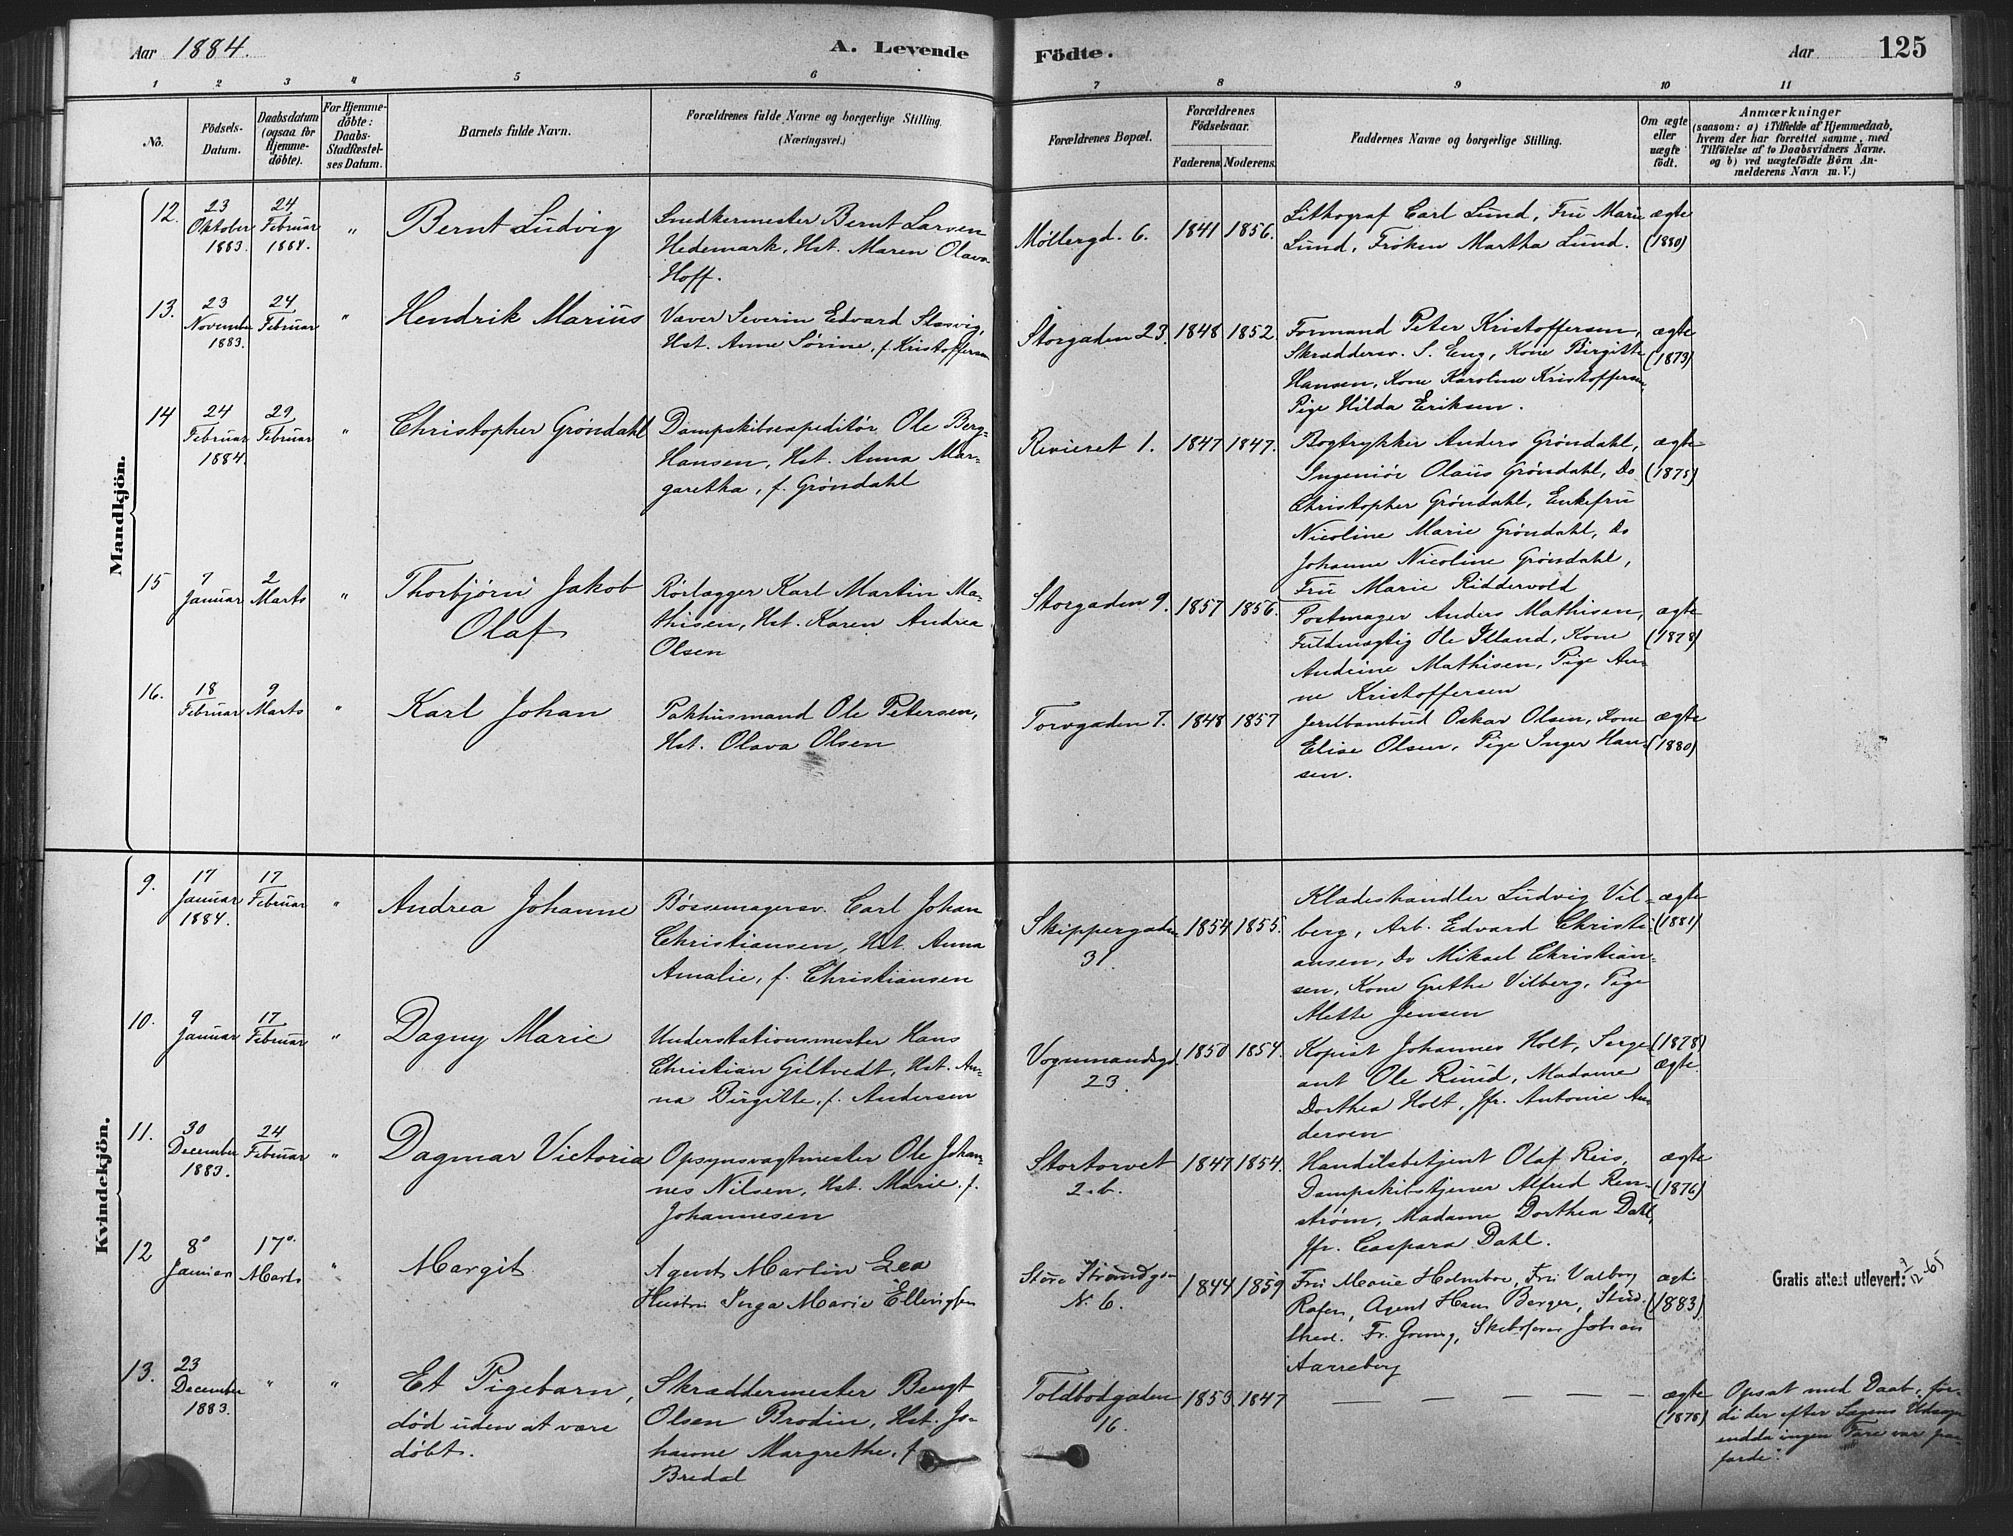 Aar 1884.
A. Levende Födte.
Aar
125
1 2 3 4 5 6 7 8 9 10 11
No.
Födsels-
Datum.
Daabsdatum
(ogsaa for
Hjemme-
döbte).
For Hjemme-
döbte:
Daabs-
Stadfæstel-
ses Datum.
Barnets fulde Navn.
Forældrenes fulde Navne og borgerlige Stilling.
(Næringsvei.)
Forældrenes Bopæl.
Forældrenes
Födselsaar.
Faderens. Moderens.
Faddernes Navne og borgerlige Stilling.
Om ægte
eller
uægte
födt.
Anmærkninger
(saasom: a) i Tilfælde af Hjemmedaab,
hvem der har forrettet samme, med
Tilföielse af to Daabsvidners Navne,
og b) ved uægtefödte Börn An-
melderens Navn m. V.)
Mandkjön.
12.
23
Oktober
1883.
24
Februar
1884.
"
Bernt Ludvig
Snedkermester Bernt Larsen
Hedemark, Hst. Maren Olava
Hoff.
Møllergd. 6.
1841 1856.
Lithograf Carl Lund, Fru Marie
Lund, Frøken Martha Lund.
ægte
(1880)
13.
23
November
1883.
24
Februar
"
Hendrik Marius
Væver Severin Edvard Slasvig,
Hst. Anne Sørine, f. Kristoffersen
Storgaden 23.
1848 1852.
Formand Peter Kristoffersen,
Skræddersv. S. Eng, Kone Birgitte
Hansen, Kone Karoline Kristoffersen,
Pige Hilda Eriksen.
ægte
(1873)
14
24
Februar
1884.
29
Februar
"
Christopher Grøndahl
Dampskibsexpeditør Ole Berg-
Hansen, Hst. Anna Mar-
garetha, f. Grøndahl
Revieret 1.
1847 1847.
Bogtrykker Anders Grøndahl,
Ingeniør Olaus Grøndahl, Do
Christopher Grøndahl, Enkefru
Nicoline Marie Grøndahl, Do
Johanne Nicoline Grøndahl,
Fru Marie Riddervold
ægte
(1875)
15
7
Januar
2
Marts
"
Thorbjørn Jakob
Olaf
Rørlægger Karl Martin Ma-
thisen, Hst. Karen Andrea
Olsen
Storgaden 9.
1857 1856.
Portmager Anders Mathisen,
Fuldmægtig Ole Illand, Kone
Andrine Mathisen, Pige An-
ne Kristoffersen
ægte
(1878)
16.
18
Februar
9
Marts
"
Karl Johan
Pakhusmand Ole Petersen,
Hst. Olava Olsen
Torvgaden 7.
1848 1857
Jernbanebud Oskar Olsen, Kone
Elise Olsen, Pige Inger Han-
sen.
ægte
(1880)
Kvindekjön.
9.
17
Januar
1884.
17
Februar
"
Andrea Johanne
Bøssemagersv. Carl Johan
Christiansen, Hst. Anna
Amalie, f. Christiansen
Skippergaden
31
1854 1855.
Klædeshandler Ludvig Vil-
berg, Arb. Edvard Christi-
ansen, Do Mikael Christian-
sen, Kone Grethe Vilberg, Pige
Mette Jensen
ægte
(1881)
10.
9
Januar
17
Februar
"
Dagny Marie
Understationsmester Hans
Christian Giltvedt, Hst. An-
na Birgitte, f. Andersen
Vognmandsgd.
23.
1850 1854.
Kopist Johannes Holt, Serge-
ant Ole Ruud, Madame
Dorthea Holt, Jfr. Antonie An-
dersen
(1878)
ægte.
11.
30
December
1883.
24
Februar
"
Dagmar Victoria
Opsynsvagtmester Ole Johan-
nes Nilsen, Hst. Marie, f.
Johannesen
Stortorvet
2.b.
1847 1854.
Handelsbetjent Olaf Reis,
Dampskibstjener Alfred Ren-
strøm, Madame Dorthea Dahl,
Jfr. Caspara Dahl.
ægte
(1876)
12
8
Januar
17
Marts
"
Margit
Agent Martin Lea
Hustru Inga Marie Ellingsen
Store Strandgd.
N. 6.
1844 1859
Fru Marie Holmboe, Fru Valborg
Rafen, Agent Hans Berger, Stud.
Fr. Skibsfører Johan
Aarreberg
ægte
(1883)
Gratis attest utlevert:
12-65
13.
23
December
1883.
"
"
Et Pigebarn,
død uden at være
døbt.
Skræddermester Bengt
Olsen Brodin, Hst. Jo-
hanne Margrethe, f.
Bredal
Toldbodgaden
16.
1853 1847
— — — — —
ægte
(1878)
Opsat med Daab, for-
di der efter Lægens Udsagn
endda ingen Fare var paa
færde.